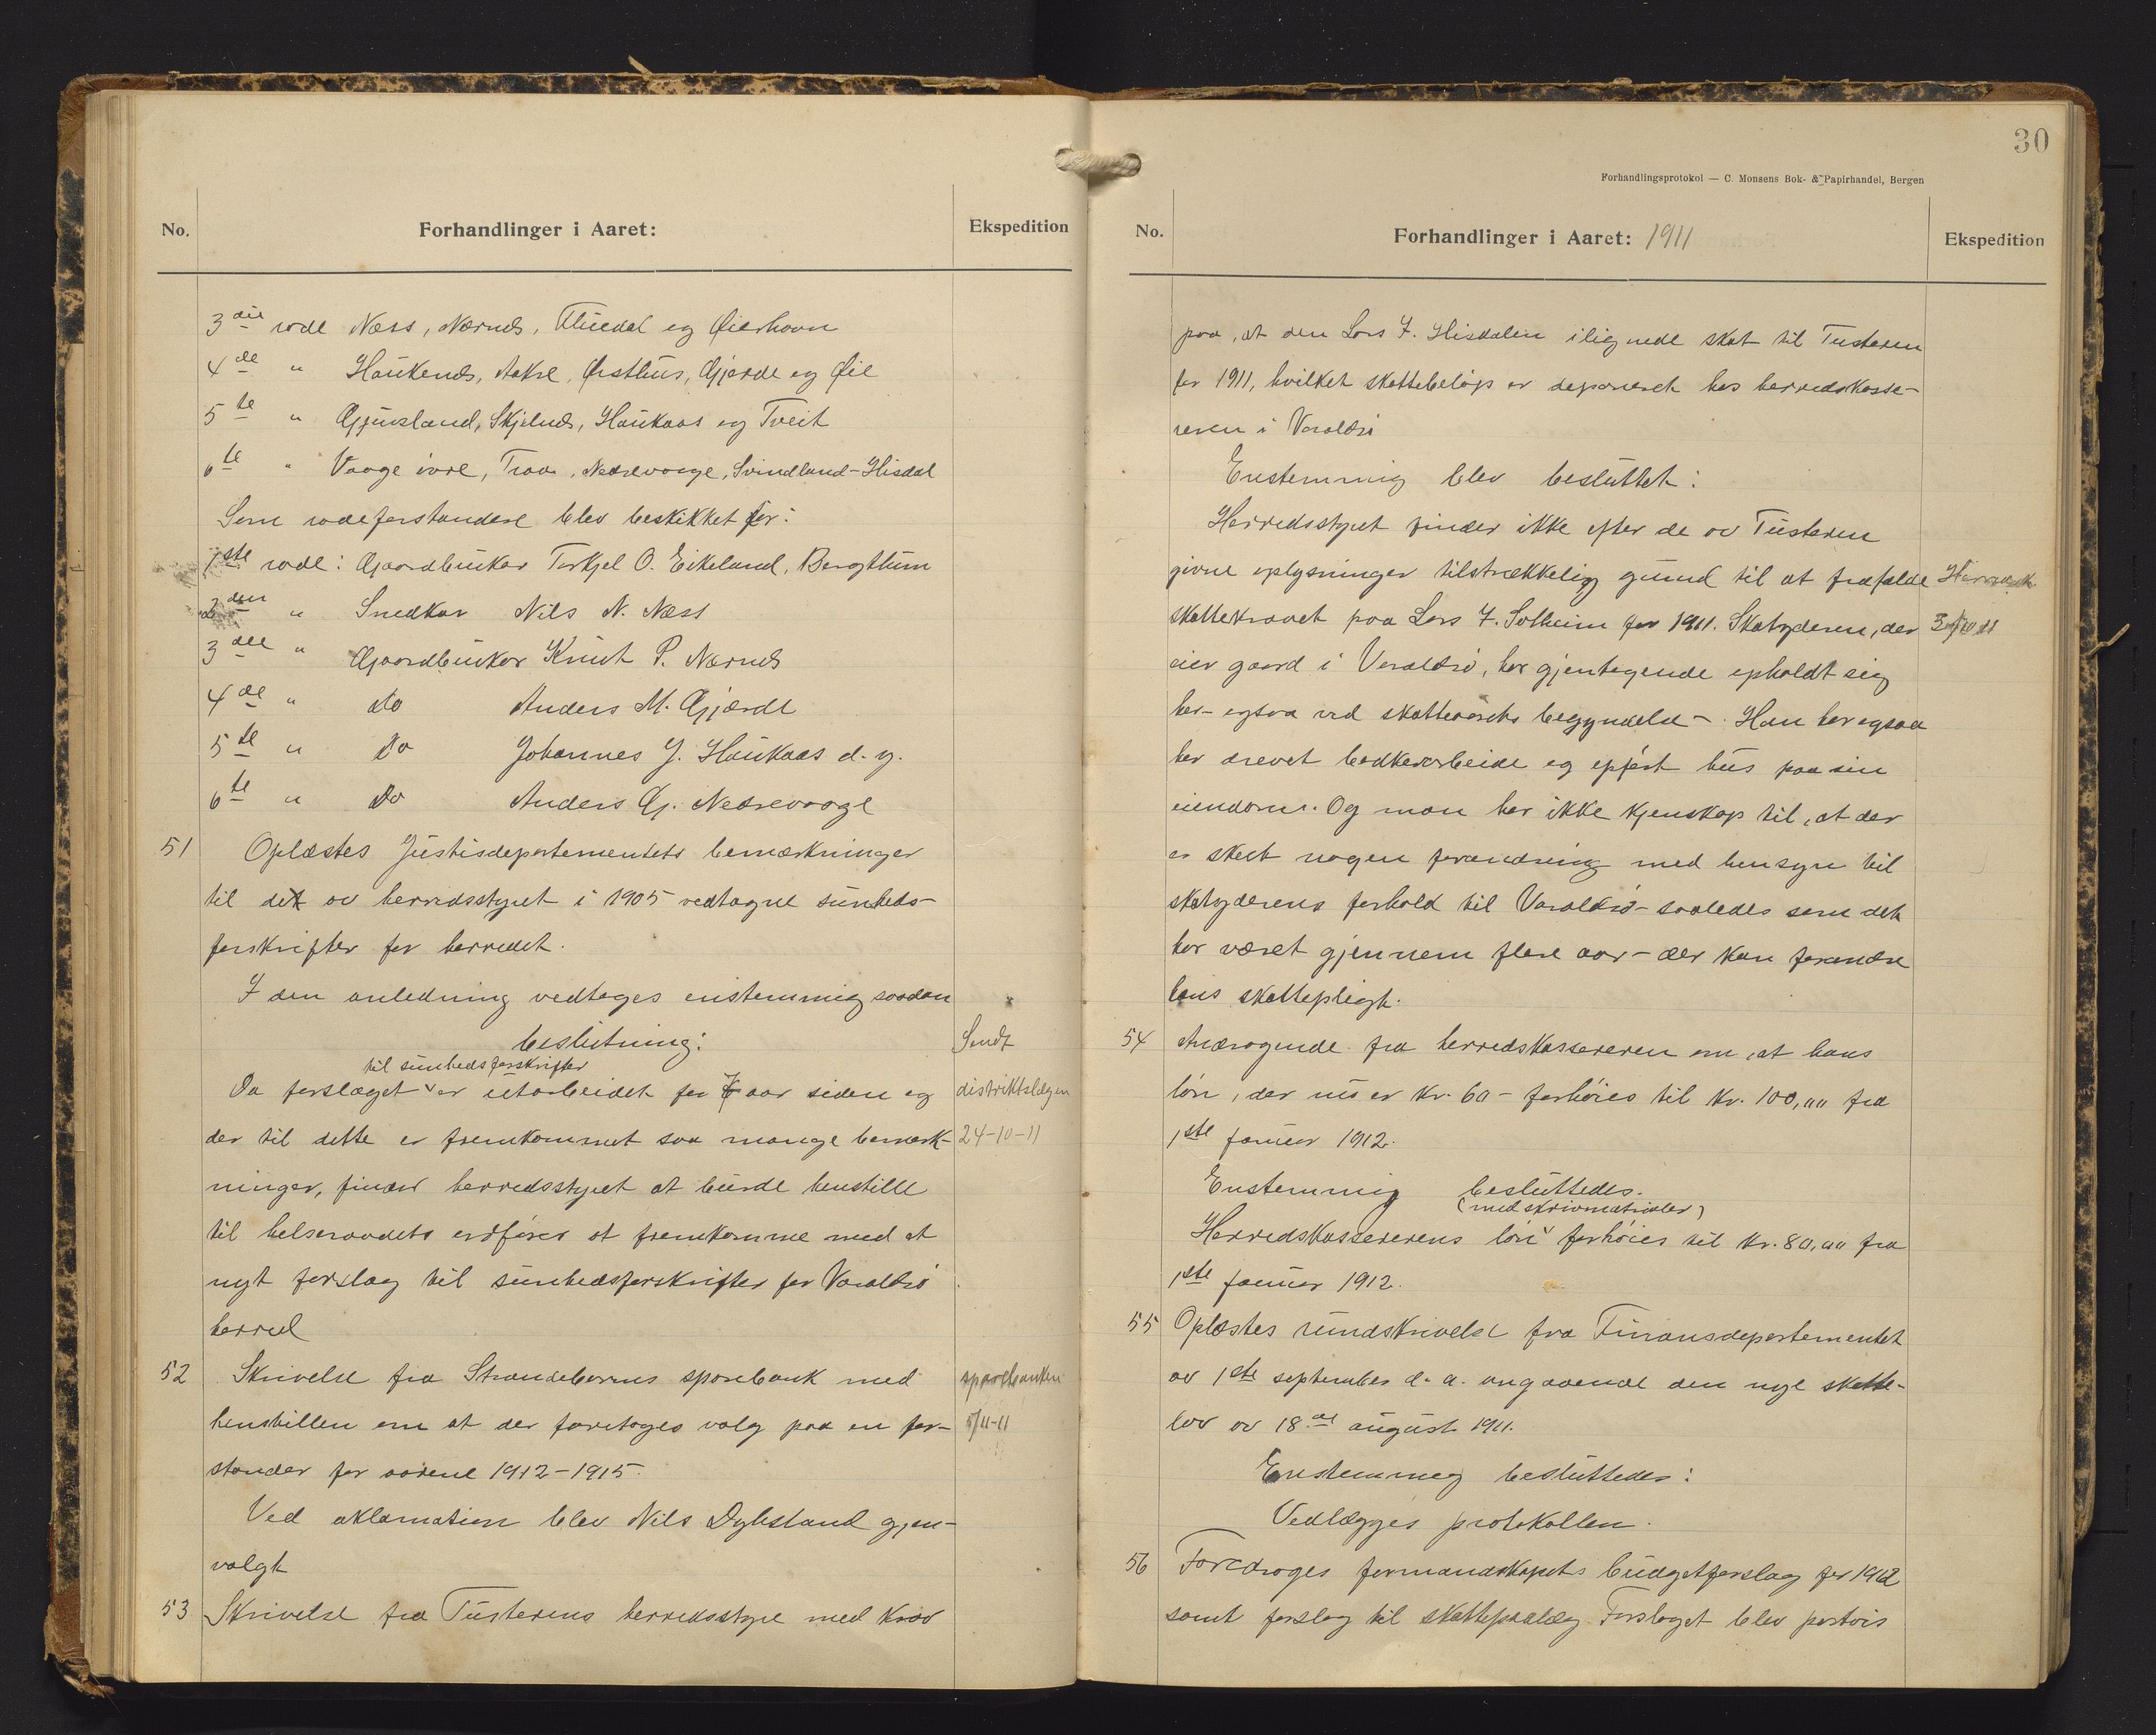 No.
Forhandlinger i Aaret:
Ekspedition
3die rode Næss, Nernes, Fluedal og Øierhavn
4de " Haukenes, Aakre, Ørsthus, Gjærde og Øie
5te " Gjuvsland, Skjelnes, Haukaas og Tveit
6te " Vaage ivre, Traa, Nedrevaage, Svindland-Hisdal
Som rodeforstandere blev beskikket for:
1ste rode: Gaardbruker Torkjel O. Eikeland, Bergthun
2den " Snedker Nils N. Næss
3die " Gaardbruker Knut P. Nernes
4de " do Anders M. Gjærde
5te " do Johannes J. Haukaas d. y.
6te " do Anders G. Nedrevaage
51 Oplæstes Justisdepartementets bemærkninger
til det av herredsstyret i 1905 vedtagne sunheds-
forskrifter for herredet.
I den anledning vedtoges enstemmig saadan
beslutning:
Sendt
til sunhedsforskrifter
Da forslaget er utarbeidet for 7 aar siden og
distriktslægen
der til dette er fremkommet saa mange bemerk-
24-10-11
ninger, finder herredsstyret at burde henstille
til helseraadets ordfører at fremkomme med et
nyt forslag til sunhedsforskrifter for Varaldsø
herred
52 Skrivelse fra Strandebarms sparebank med
sparebanken
henstillen om at der foretages valg paa en for-
5/11-11
stander for aarene 1912-1915.
Ved aklamation blev Nils Dybsland gjen-
valgt
53 Skrivelse fra Tusterens herredsstyre med krav
30
Forhandlingsprotokol — C. Monsens Bok- & Papirhandel, Bergen
No.
Forhandlinger i Aaret: 1911
Ekspedition
paa, at den Lars J. Hisdalen ilignede skat til Tusteren
for 1911, hvilket skattebeløp er deponeret hos herredskasse-
reren i Varaldsø
Enstemmig blev besluttet:
Herredsstyret finder ikke efter de av Tusteren
givne oplysninger tilstrækkelig grund til at frafalde
skattekravet paa Lars J. Solheim for 1911. Skatyderen, der
eier gaard i Varaldsø, har gjentagende opholdt sig
her - ogsaa ved skatteaarets begyndelse -. Han har ogsaa
her drevet bødkerarbeide og opført hus paa sin
eiendom. Og man har ikke kjenskap til, at der
er skeet nogen forandring med hensyn til
skatyderens forhold til Varaldsø - saaledes som det
har været gjennem flere aar - der kan forandre
hans skattepligt.
54 Andragende fra herredskassereren om, at hans
løn, der nu er kr. 60 - forhøies til kr. 100,00 fra
1ste januar 1912.
Enstemmig besluttedes.
(med skrivmatrialer)
Herredskassererens løn forhøies til kr. 80,00 fra
1ste januar 1912.
55 Oplæstes rundskrivelse fra Finansdepartementet
av 1ste september d. a. angaaende den nye skatte-
lov av 18de august 1911.
Enstemmig besluttedes:
Vedlægges protokollen.
56 Foredroges formandskapets budgetforslag for 1912
samt forslag til skattepaalæg. Forslaget blev postvis